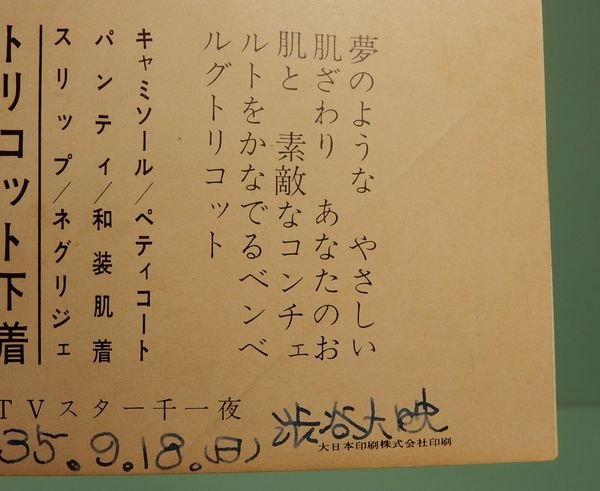 夢のような　やさしい
肌ざわり　あなたのお
肌と　素敵なコンチェ
ルトをかなでるベンベ
ルグトリコット
キャミソール/ペティコート
パンティ/和装肌着
スリップ/ネグリジェ
トリコット下着
TVスター千一夜
35.9.18.(日) 渋谷大映
大日本印刷株式会社印刷